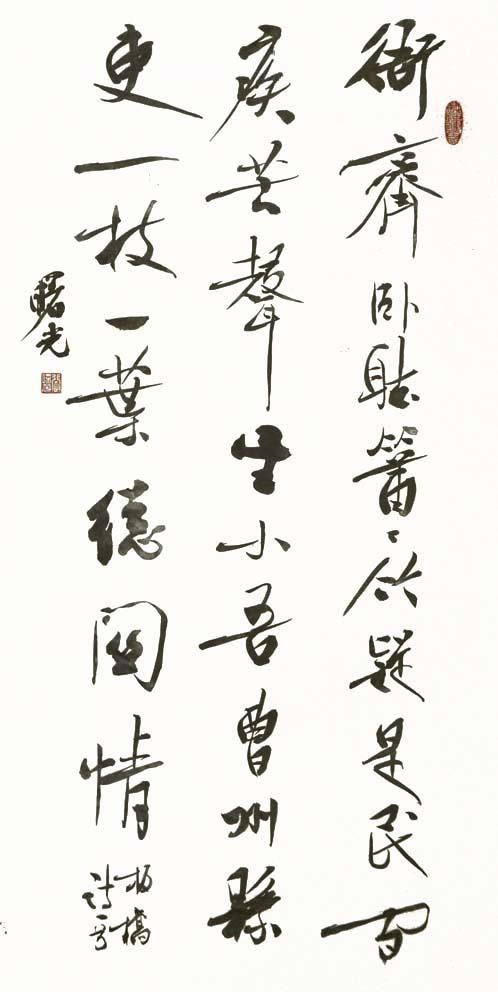 衙齋卧聽簫〻竹疑是民間
疾苦聲些小吾曹州縣
吏一枝一葉總關情
板橋
詩
曙光